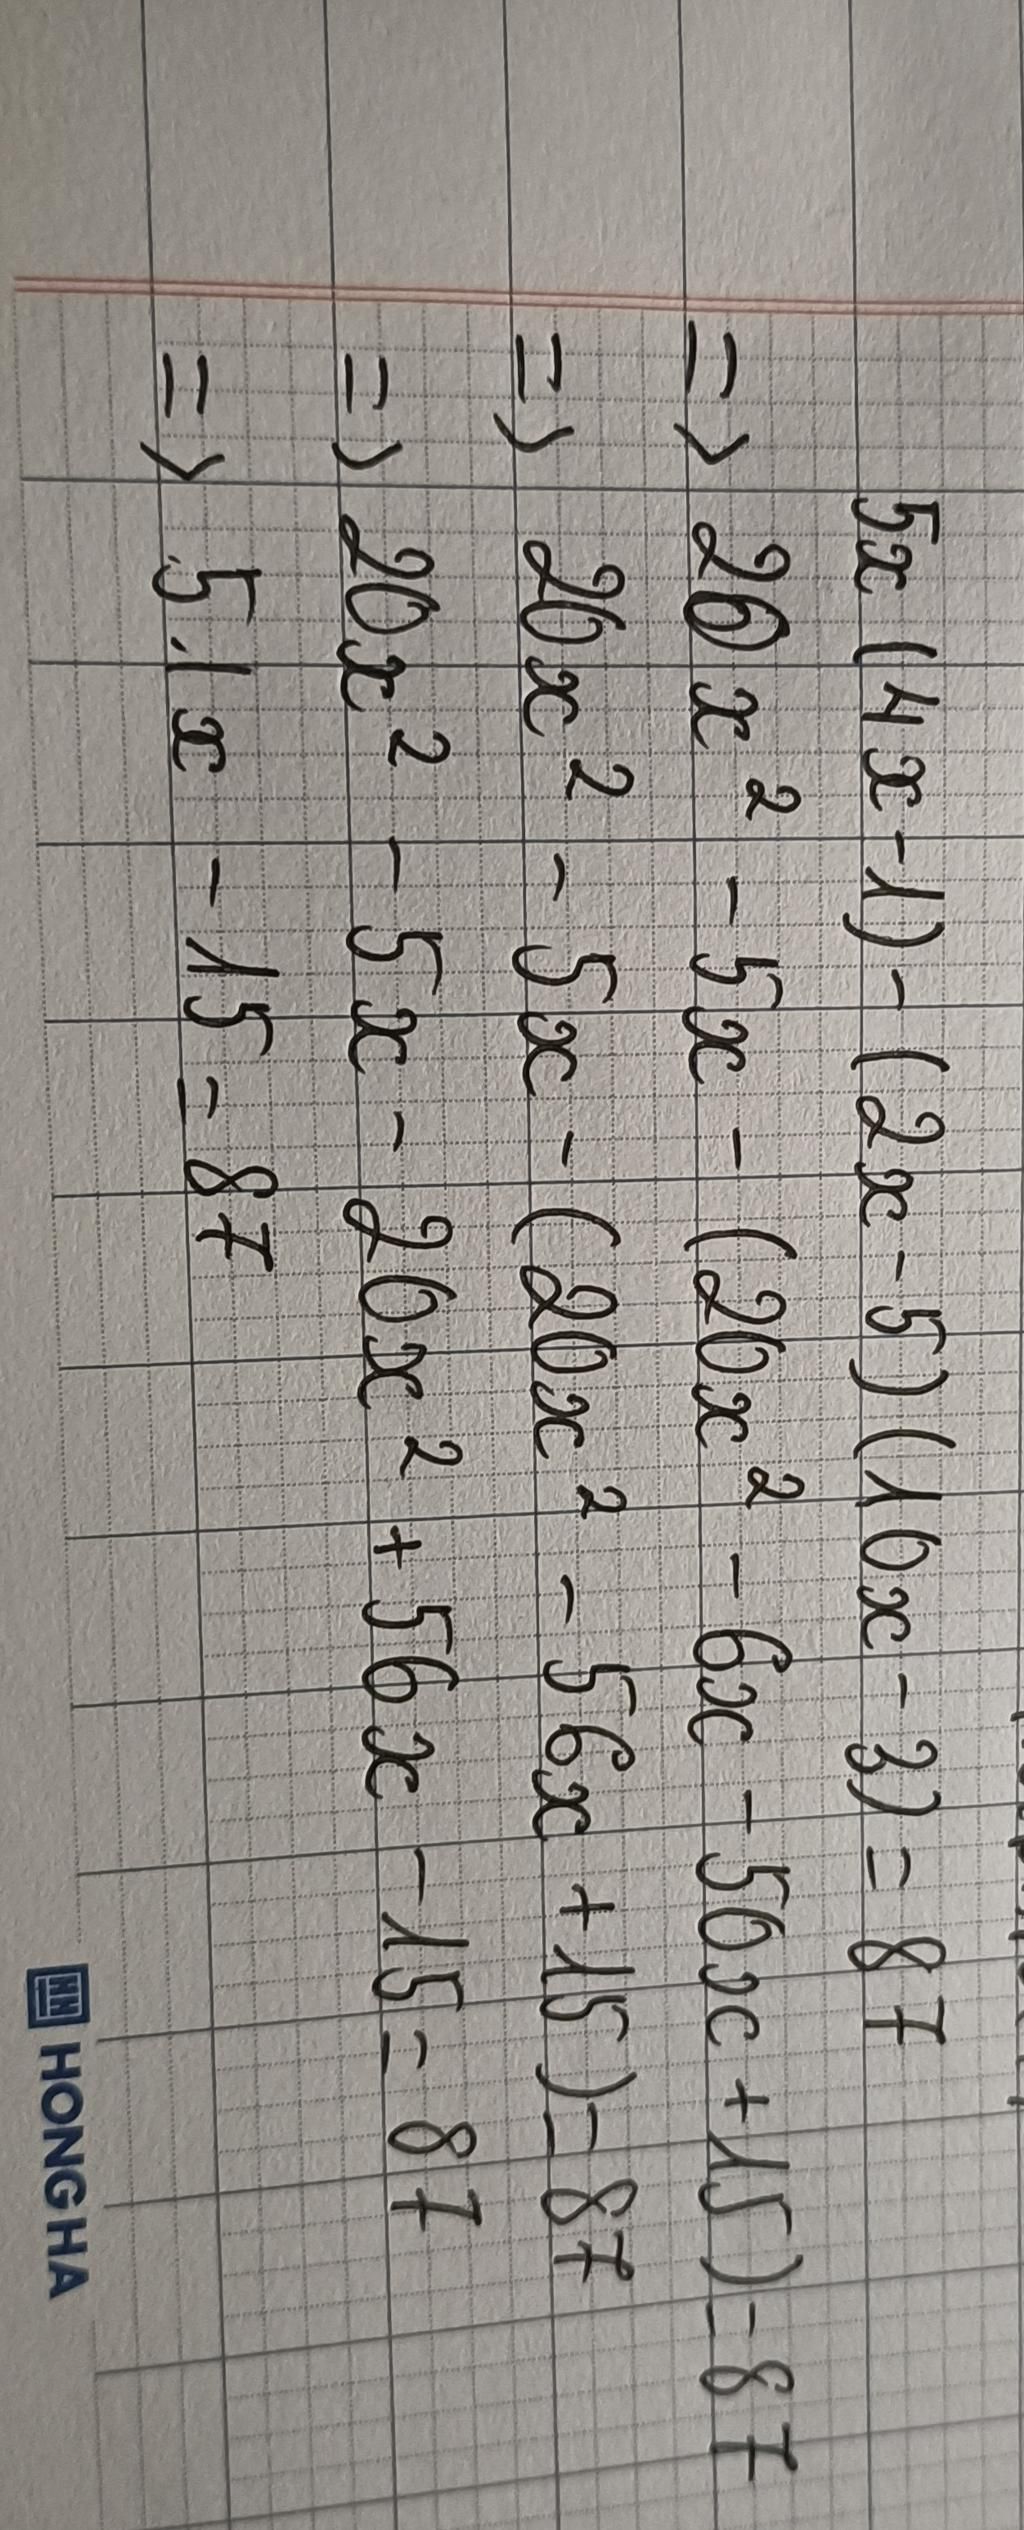 5x(4x-1)-(2x-5)(10x-3)=87
=> 20x² - 5x - (20x² - 6x - 50x + 15) = 87
=> 20x² - 5x - (20x² - 56x + 15) = 87
=> 20x² - 5x - 20x² + 56x - 15 = 87
=> 51x - 15 = 87
HONG HA